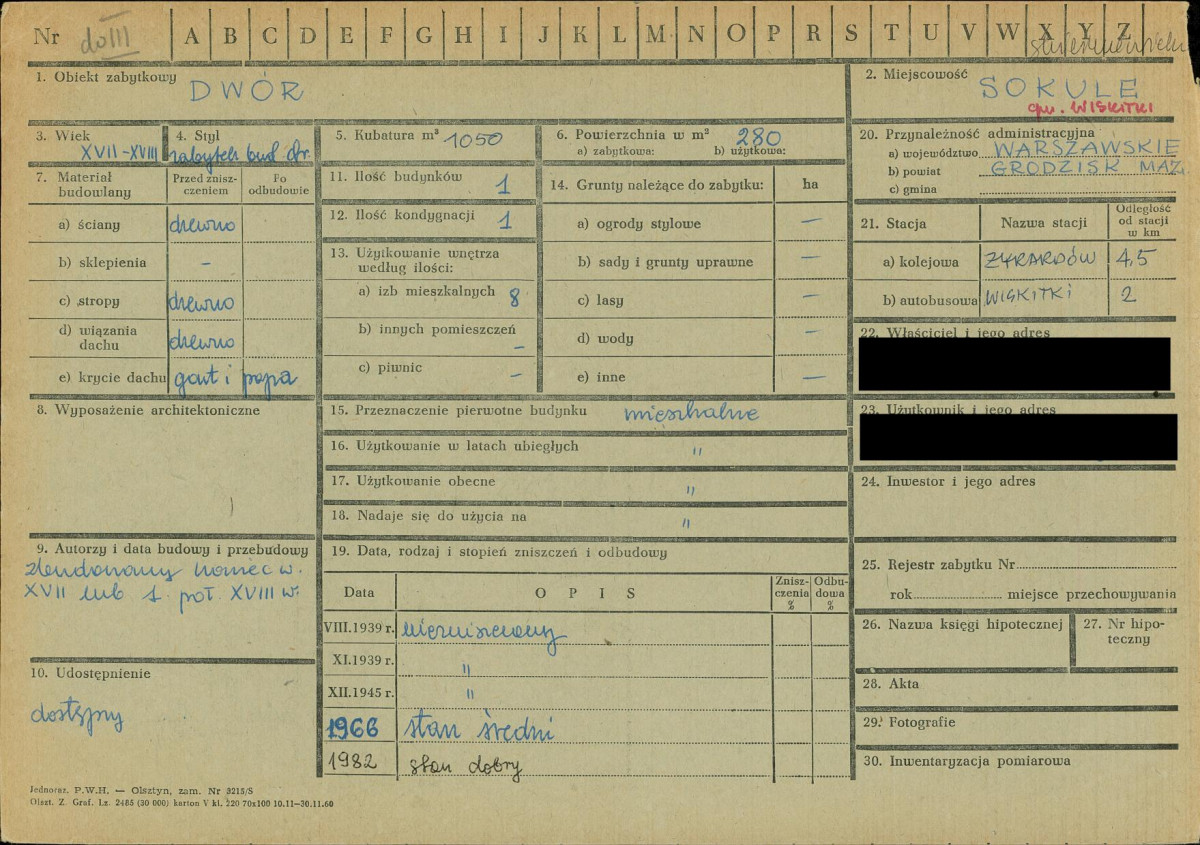 Nr do III A B C D E F G H I J K L M N O P R S T U V W X Y Z
1. Obiekt zabytkowy DWÓR
2. Miejscowość SOKULE
gm. WISKITKI
3. Wiek XVII-XVIII
4. Styl zabytek bud. dr.
5. Kubatura m³ 1050
6. Powierzchnia w m² 280
a) zabytkowa: b) użytkowa:
7. Materiał budowlany
Przed zniszczeniem
Po odbudowie
a) ściany drewno
b) sklepienia –
c) stropy drewno
d) wiązania dachu drewno
e) krycie dachu gont i papa
8. Wyposażenie architektoniczne
9. Autorzy i data budowy i przebudowy
zbudowany koniec w.
XVII lub 1. poł. XVIII w.
10. Udostępnienie
dostępny
11. Ilość budynków 1
12. Ilość kondygnacji 1
13. Użytkowanie wnętrza
według ilości:
a) izb mieszkalnych 8
b) innych pomieszczeń –
c) piwnic –
14. Grunty należące do zabytku: ha
a) ogrody stylowe —
b) sady i grunty uprawne —
c) lasy —
d) wody —
e) inne —
15. Przeznaczenie pierwotne budynku mieszkalne
16. Użytkowanie w latach ubiegłych "
17. Użytkowanie obecne "
18. Nadaje się do użycia na "
19. Data, rodzaj i stopień zniszczeń i odbudowy
Data OPIS Zniszczenia % Odbudowa %
VIII.1939 r. niezniszczony
XI.1939 r. "
XII.1945 r. "
1966 stan średni
1982 stan dobry
20. Przynależność administracyjna
a) województwo WARSZAWSKIE
b) powiat GRODZISK MAZ.
c) gmina
21. Stacja Nazwa stacji Odległość od stacji w km
a) kolejowa ŻYRARDÓW 4,5
b) autobusowa WISKITKI 2
22. Właściciel i jego adres
23. Użytkownik i jego adres
24. Inwestor i jego adres
25. Rejestr zabytku Nr
rok miejsce przechowywania
26. Nazwa księgi hipotecznej
27. Nr hipoteczny
28. Akta
29. Fotografie
30. Inwentaryzacja pomiarowa
Jednoraz. P.W.H. — Olsztyn, zam. Nr 3215/S
Olszt. Z. Graf. Lz. 2485 (30 000) karton V kl. 220 70x100 10.11—30.11.60